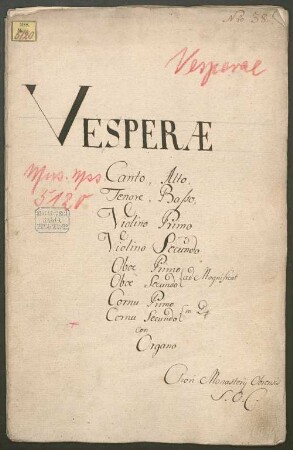 No 38
Mus. Mss.
5120
Vesperae
VESPERÆ
Mus. Mss
5120.
Canto, Alto,
Tenore, Basso,
Violino Primo
e
Violino Secundo
Oboe Primo
Oboe Secundo ad Magnificat
Cornu Primo
Cornu Secundo in D
con
Organo
Chori Monasterij
S. O. C.